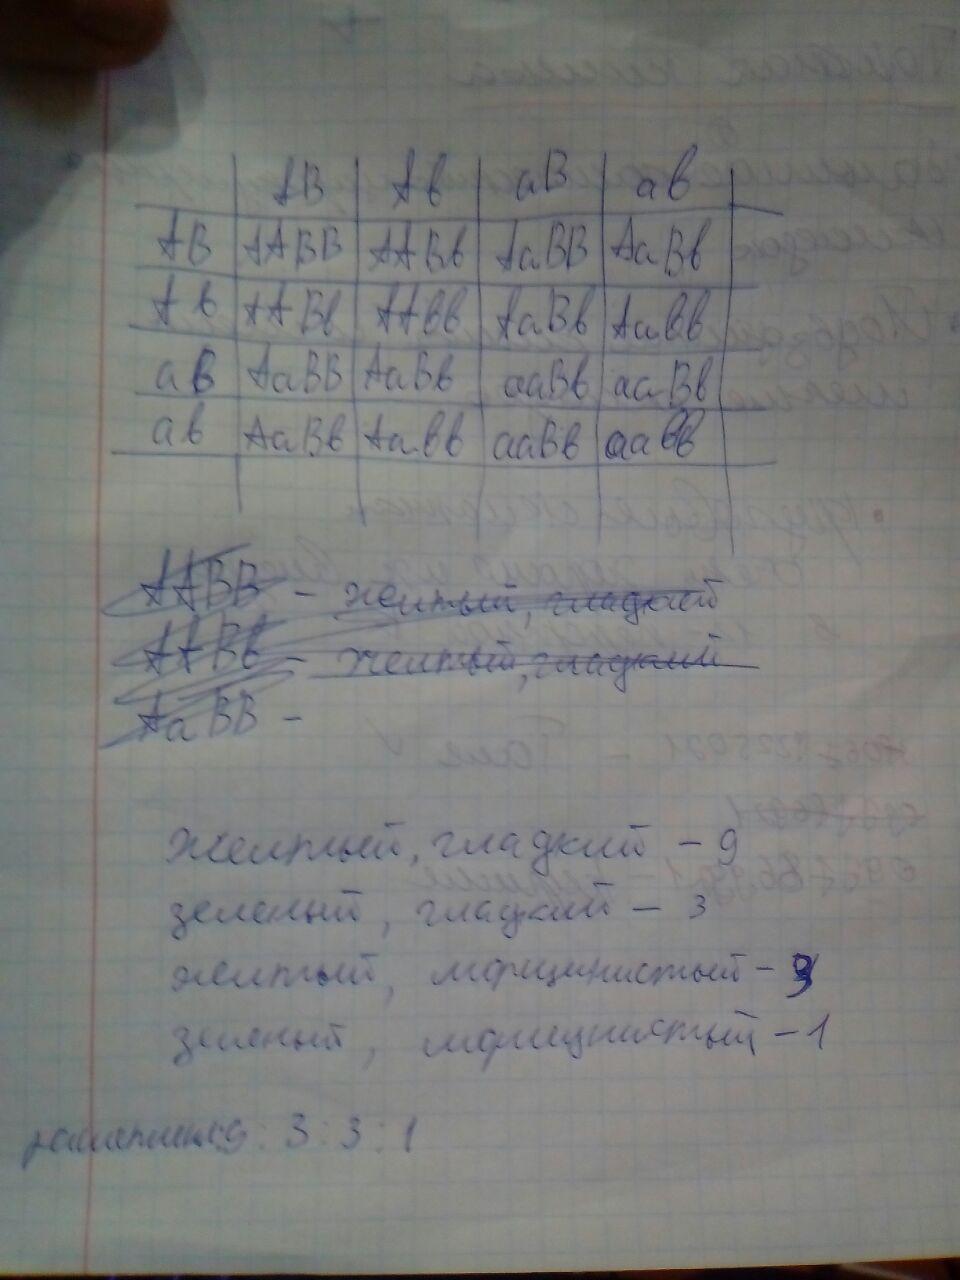 AB Ab aB ab
AB AABB AABb AaBB AaBb
Ab AABb AAbb AaBb Aabb
aB AaBB AaBb aaBb aaBb
ab AaBb Aabb aaBb aabb
AABB - желтый, гладкий
AABb - желтый, гладкий
AaBB -
желтый, гладкий - 9
зеленый, гладкий - 3
желтый, морщинистый - 3
зеленый, морщинистый - 1
9 : 3 : 3 : 1